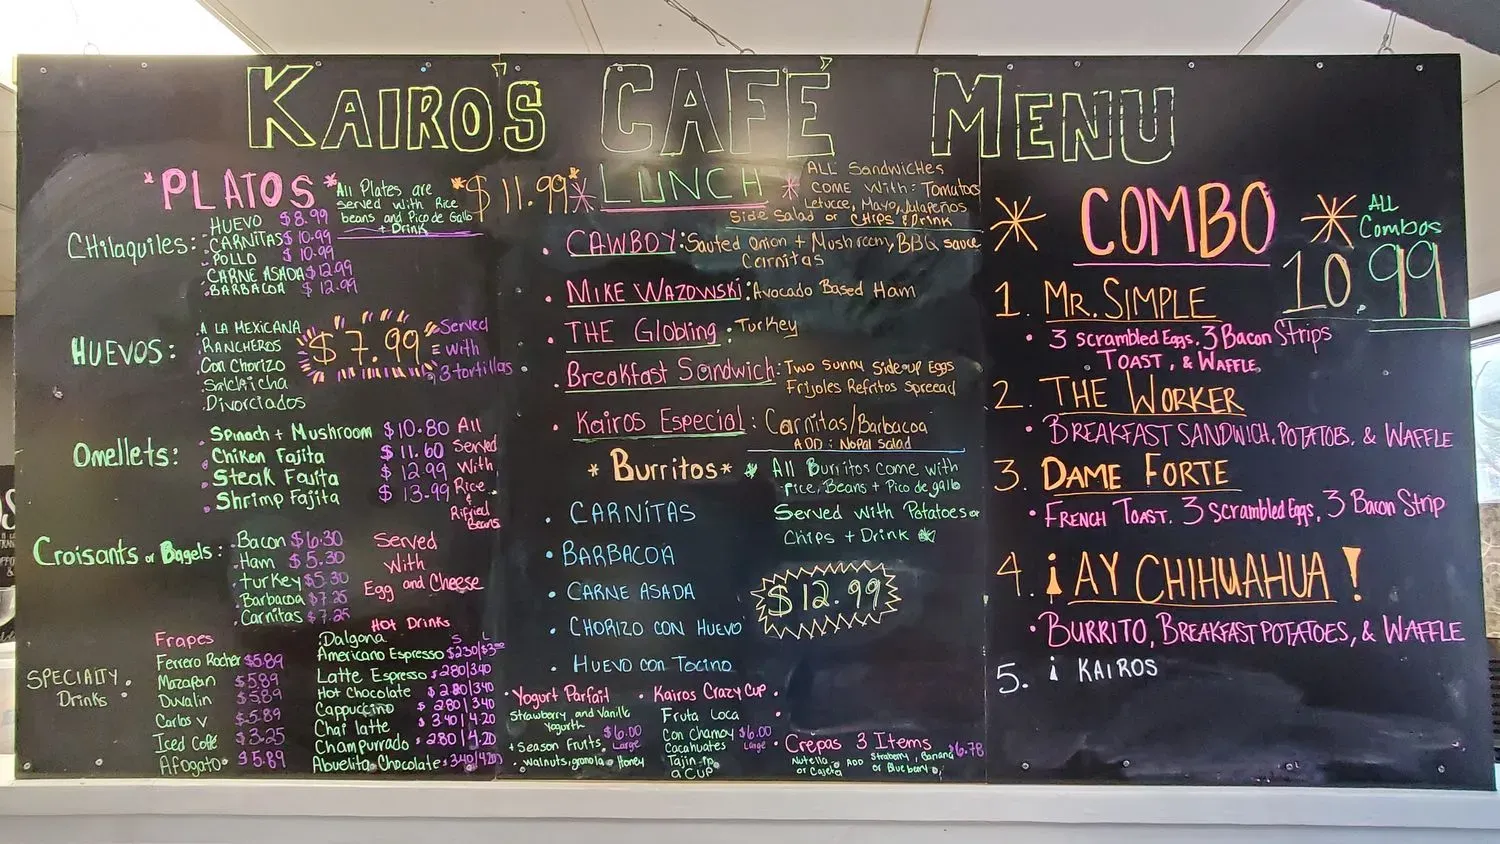 KAIRO'S CAFÉ MENU
*PLATOS*
All Plates are
served with Rice
beans and Pico de Gallo
+ Drink
CHilaquiles:
HUEVO $8.99
CARNITAS $10.99
POLLO $10.99
CARNE ASADA $12.99
BARBACOA $12.99
HUEVOS:
A LA MEXICANA
RANCHEROS
Con Chorizo
Salchicha
Divorciados
$7.99
Served
with
3 tortillas
Omellets:
Spinach + Mushroom $10.80
Chiken Fajita $11.60
Steak Fajita $12.99
Shrimp Fajita $13.99
All
Served
With
Rice
&
Rifried
Beans
Croisants or Bagels:
Bacon $6.30
Ham $5.30
turkey $5.30
Barbacoa $7.25
Carnitas $7.25
Served
With
Egg and Cheese
SPECIALTY
Drinks
Frapes
Ferrero Rocher $5.89
Mazapan $5.89
Duvalin $5.89
Carlos V $5.89
Iced Cofé $3.25
Afogato $5.89
Hot Drinks
S L
Dalgona
Americano Espresso $2.50/$3.00
Latte Espresso $2.80/3.40
Hot Chocolate $2.80/3.40
Cappuccino $2.80/3.40
Chai latte $3.40/4.20
Champurrado $2.80/4.20
Abuelita Chocolate $3.40/4.20
*$11.99*
*LUNCH*
ALL SandwicHes
COME WITH: Tomatoes
Letucce, Mayo, Jalapeños
Side Salad or CHips & Drink
CAWBOY: Sauted Onion + Mushroom, BBQ sauce
Carnitas
MIKE WAZOWSKI: Avocado Based Ham
THE Globling: Turkey
Breakfast Sandwich: Two Sunny Side up Eggs
Frijoles Refritos Spreead
Kairos Especial: Carnitas/Barbacoa
ADD: Nopal Salad
*Burritos*
* All Burritos come with
rice, Beans + Pico de gallo
Served with Potatoes or
Chips + Drink *
CARNITAS
BARBACOA
CARNE ASADA
CHORIZO CON HUEVO
HUEVO con Tocino
$12.99
Yogurt Parfait
Strawberry and Vanilla
Yogurth
$6.00
Large
+ Season Fruits
Walnuts, granola Honey
Kairos Crazy Cup
Fruta Loca
Con Chamoy $6.00
Cacahuates Large
Tajin
a CUP
Crepas 3 Items $6.78
Nutella
or Cajeta
ADD Straberry, Banana
or Blueberry
* COMBO *
ALL
Combos
10.99
1. MR. SIMPLE
3 scrambled Eggs. 3 Bacon Strips
TOAST, & WAFFLE,
2. THE WORKER
BREAKFAST SANDWICH, POTATOES, & WAFFLE
3. DAME FORTE
FRENCH TOAST. 3 Scrambled Eggs, 3 Bacon Strip
4. ¡AY CHIHUAHUA!
BURRITO, BREAKFAST POTATOES, & WAFFLE
5. ¡ KAIROS